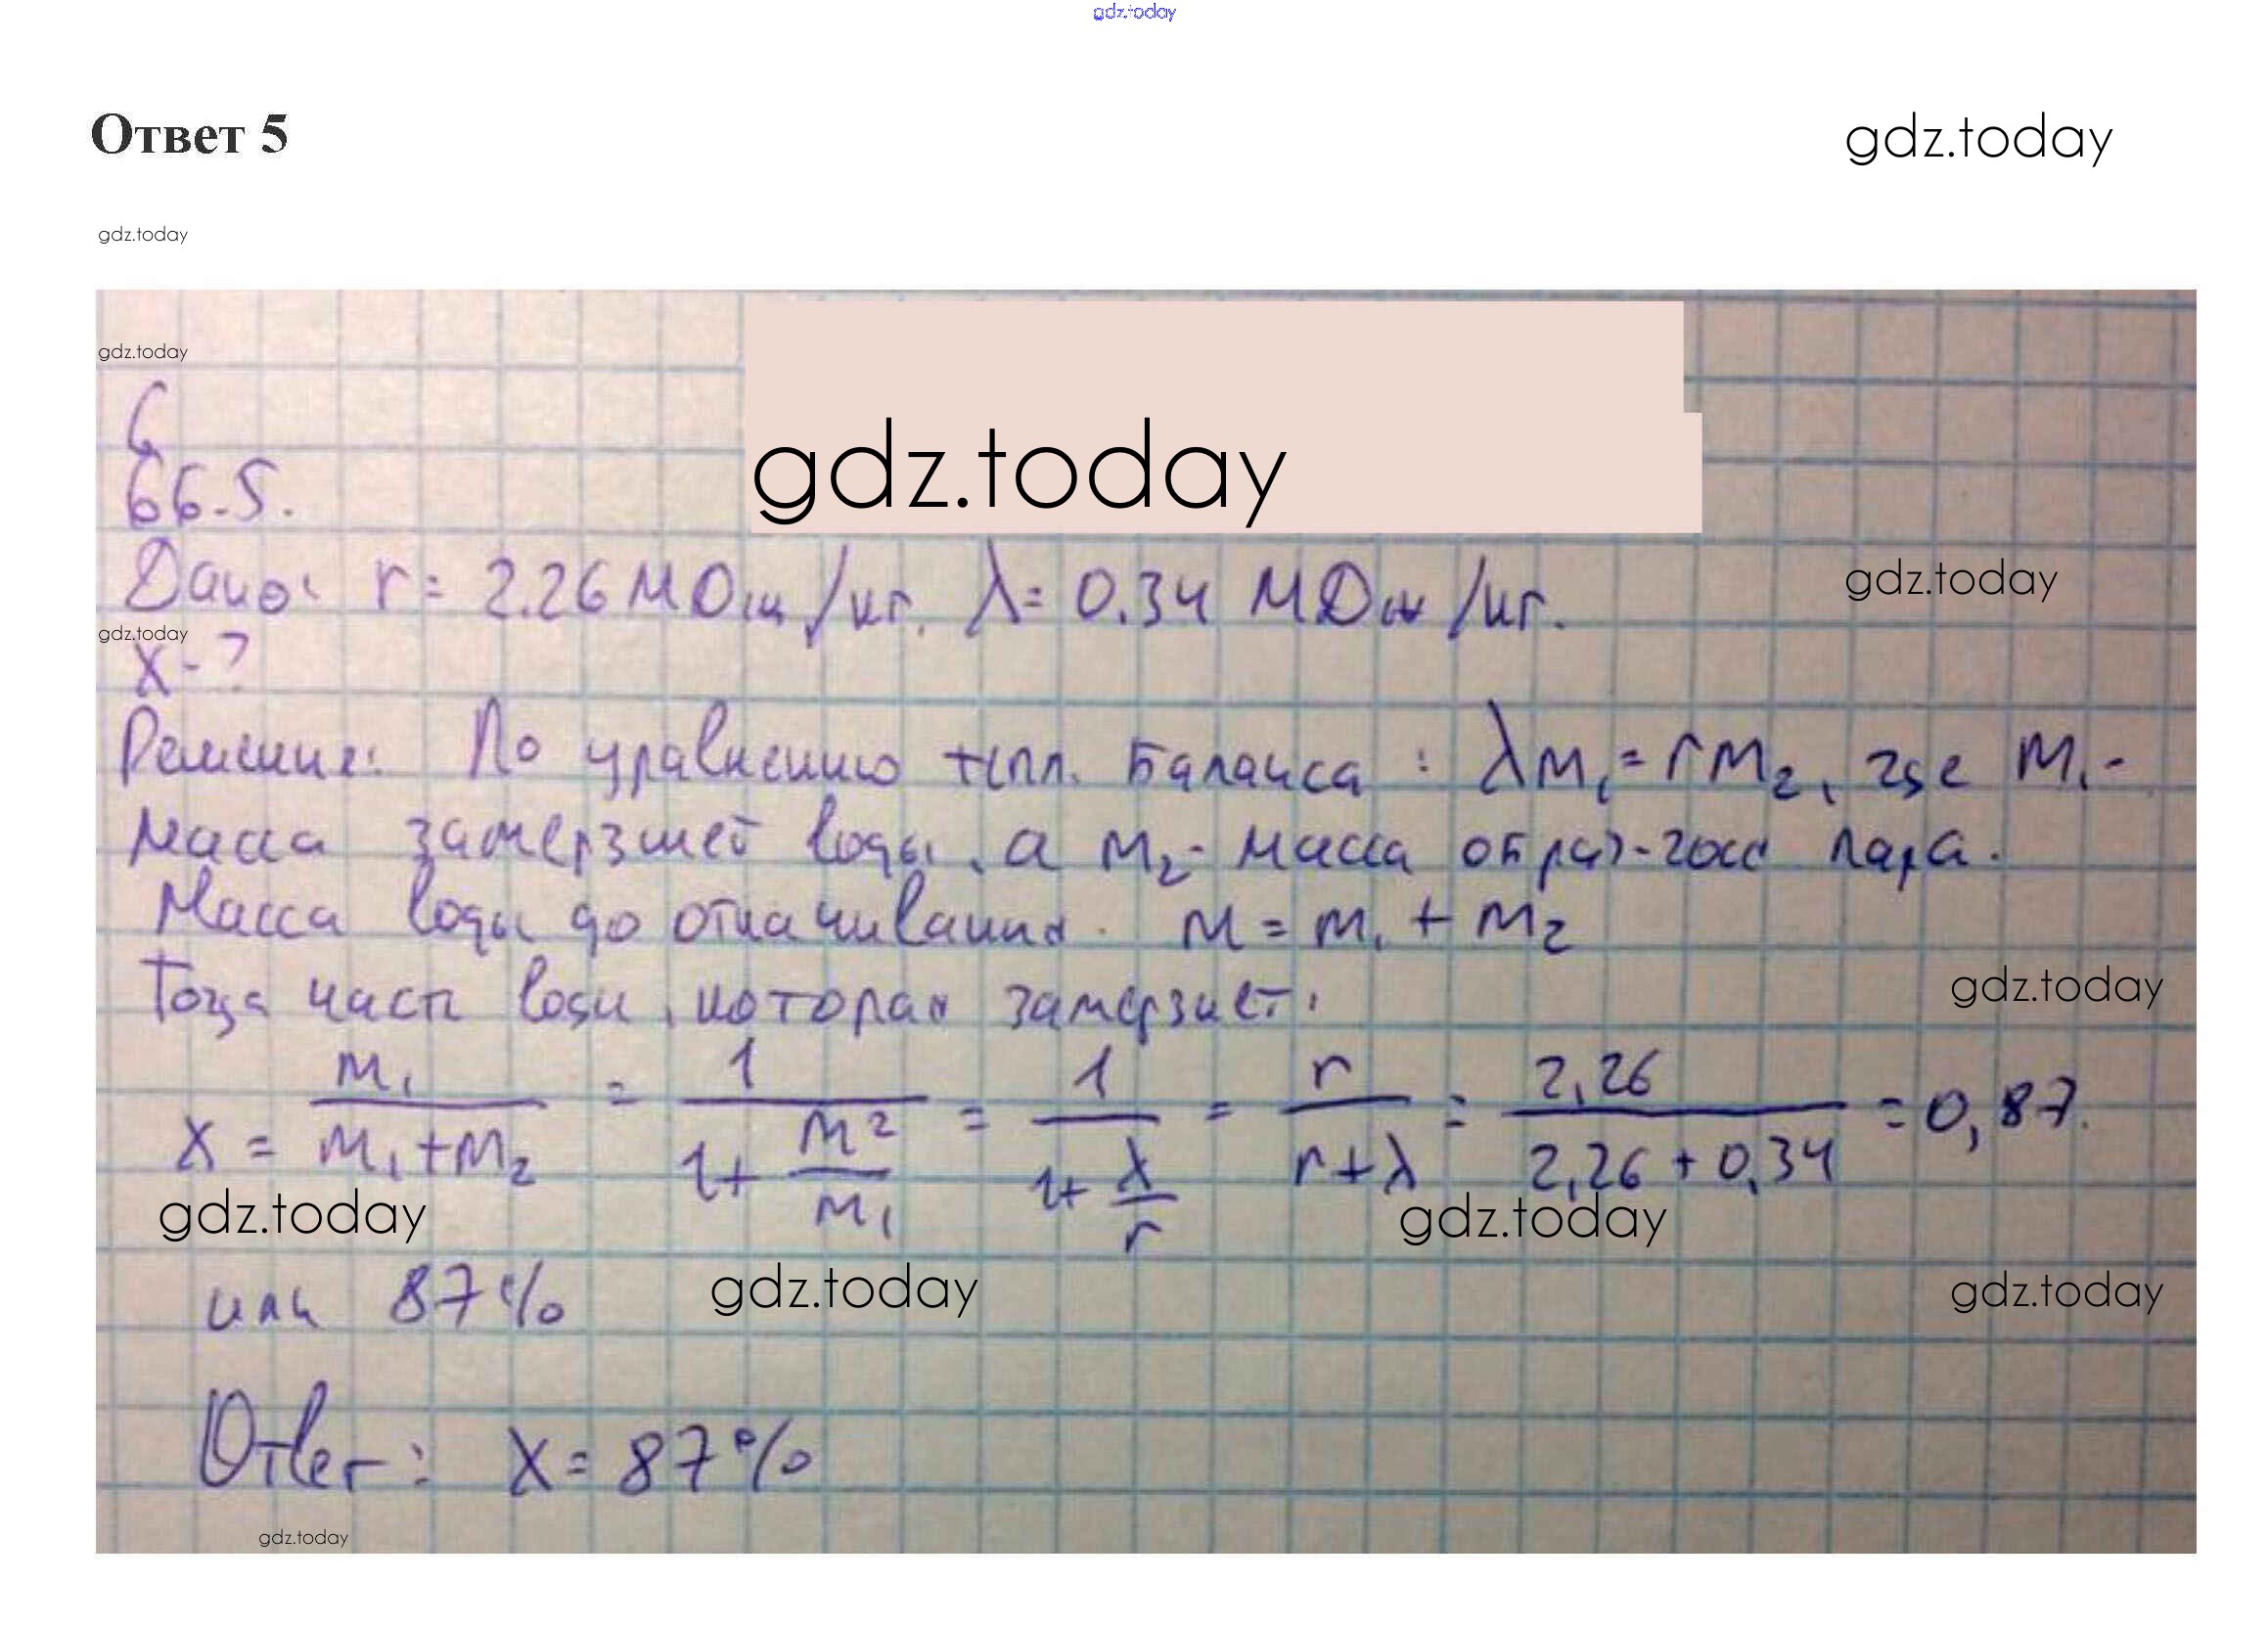 gdz.today
Ответ 5
gdz.today
gdz.today
gdz.today
6
66.5.
gdz.today
Дано: r = 2.26 МДж/кг. λ = 0.34 МДж/кг.
gdz.today
gdz.today
x - ?
Решение: По уравнению тепл. баланса: λm₁ = rm₂, где m₁ -
масса замерзшей воды, а m₂ - масса образ-гося пара.
Масса воды до откачивания. m = m₁ + m₂
Тогда часть воды, которая замерзнет:
gdz.today
x = m₁/(m₁+m₂) = 1/(1+m2/m₁) = 1/(1+λ/r) = r/(r+λ) = 2,26/(2,26+0,34) = 0,87.
gdz.today
gdz.today
или 87%
gdz.today
gdz.today
Ответ: x = 87%
gdz.today